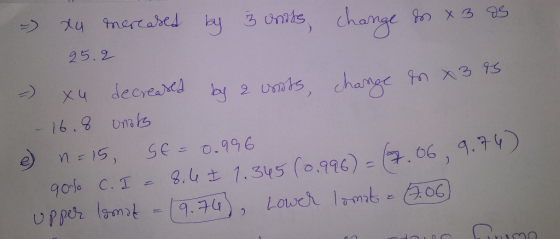 =) x4 increased by 3 units, change in x3 is
25.2
=) x4 decreased by 2 units, change in x3 is
-16.8 units
e) n = 15, SE = 0.996
90% C.I = 8.4 ± 1.345 (0.996) = (7.06, 9.74)
upper limit = 9.74, Lower limit = 7.06